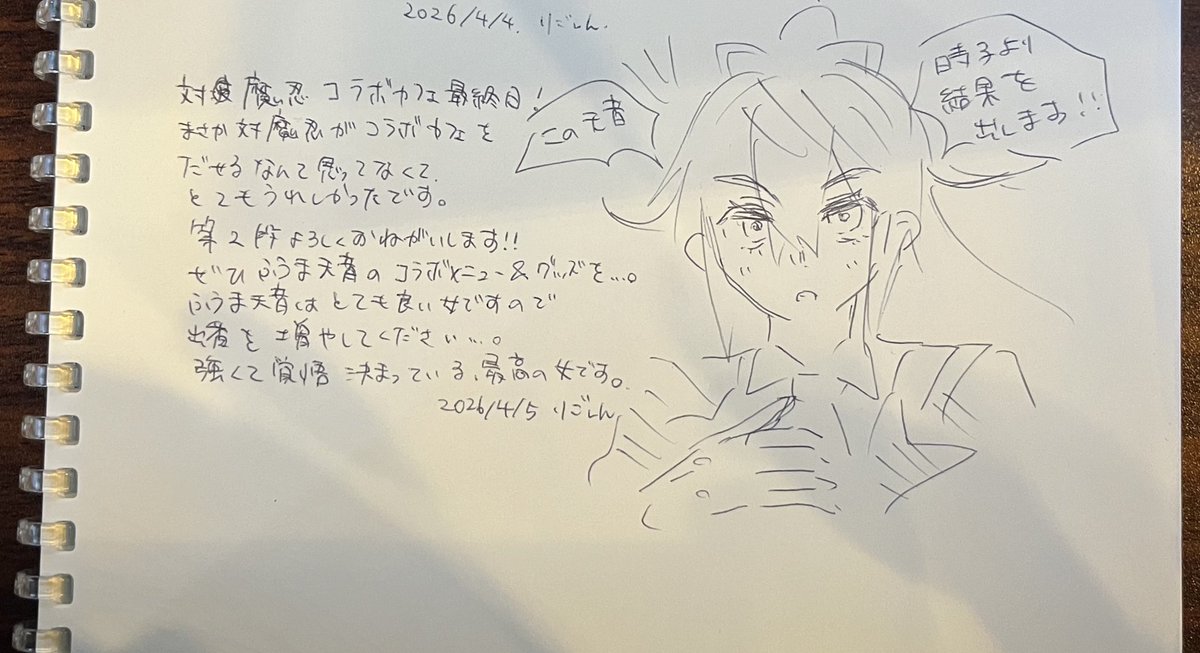 2026/4/4. りごしん.
対魔忍 コラボカフェ最終日!
まさか対魔忍がコラボカフェを
だせるなんて思ってなくて、
とてもうれしかったです。
第2段よろしくおねがいします!!
ぜひふうま天音のコラボメニュー&グッズを...。
ふうま天音はとても良い女ですので
出番を増やしてください...。
強くて覚悟決まっている、最高の女です。
2026/4/5 りごしん
この天音
時子より
結果を
出します!!